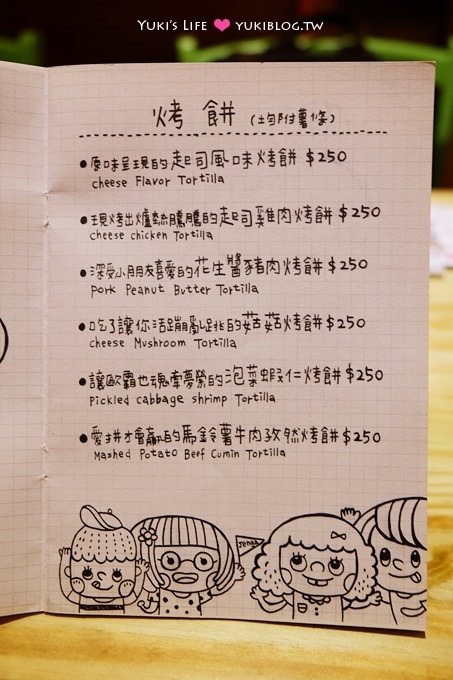 YUKI'S LIFE ❤ YUKIBLOG.TW
烤餅 (均附薯條)
●原味呈現的起司風味烤餅 $250
cheese Flavor Tortilla
●現烤出爐熱騰騰的起司雞肉烤餅 $250
cheese chicken Tortilla
●深受小朋友喜愛的花生醬豬肉烤餅 $250
Pork Peanut Butter Tortilla
●吃了讓你活蹦亂跳的菇菇烤餅 $250
cheese Mushroom Tortilla
●讓歐霸也魂牽夢縈的泡菜蝦仁烤餅 $250
Pickled cabbage shrimp Tortilla
●愛拼才會贏的馬鈴薯牛肉孜然烤餅 $250
Mashed Potato Beef Cumin Tortilla